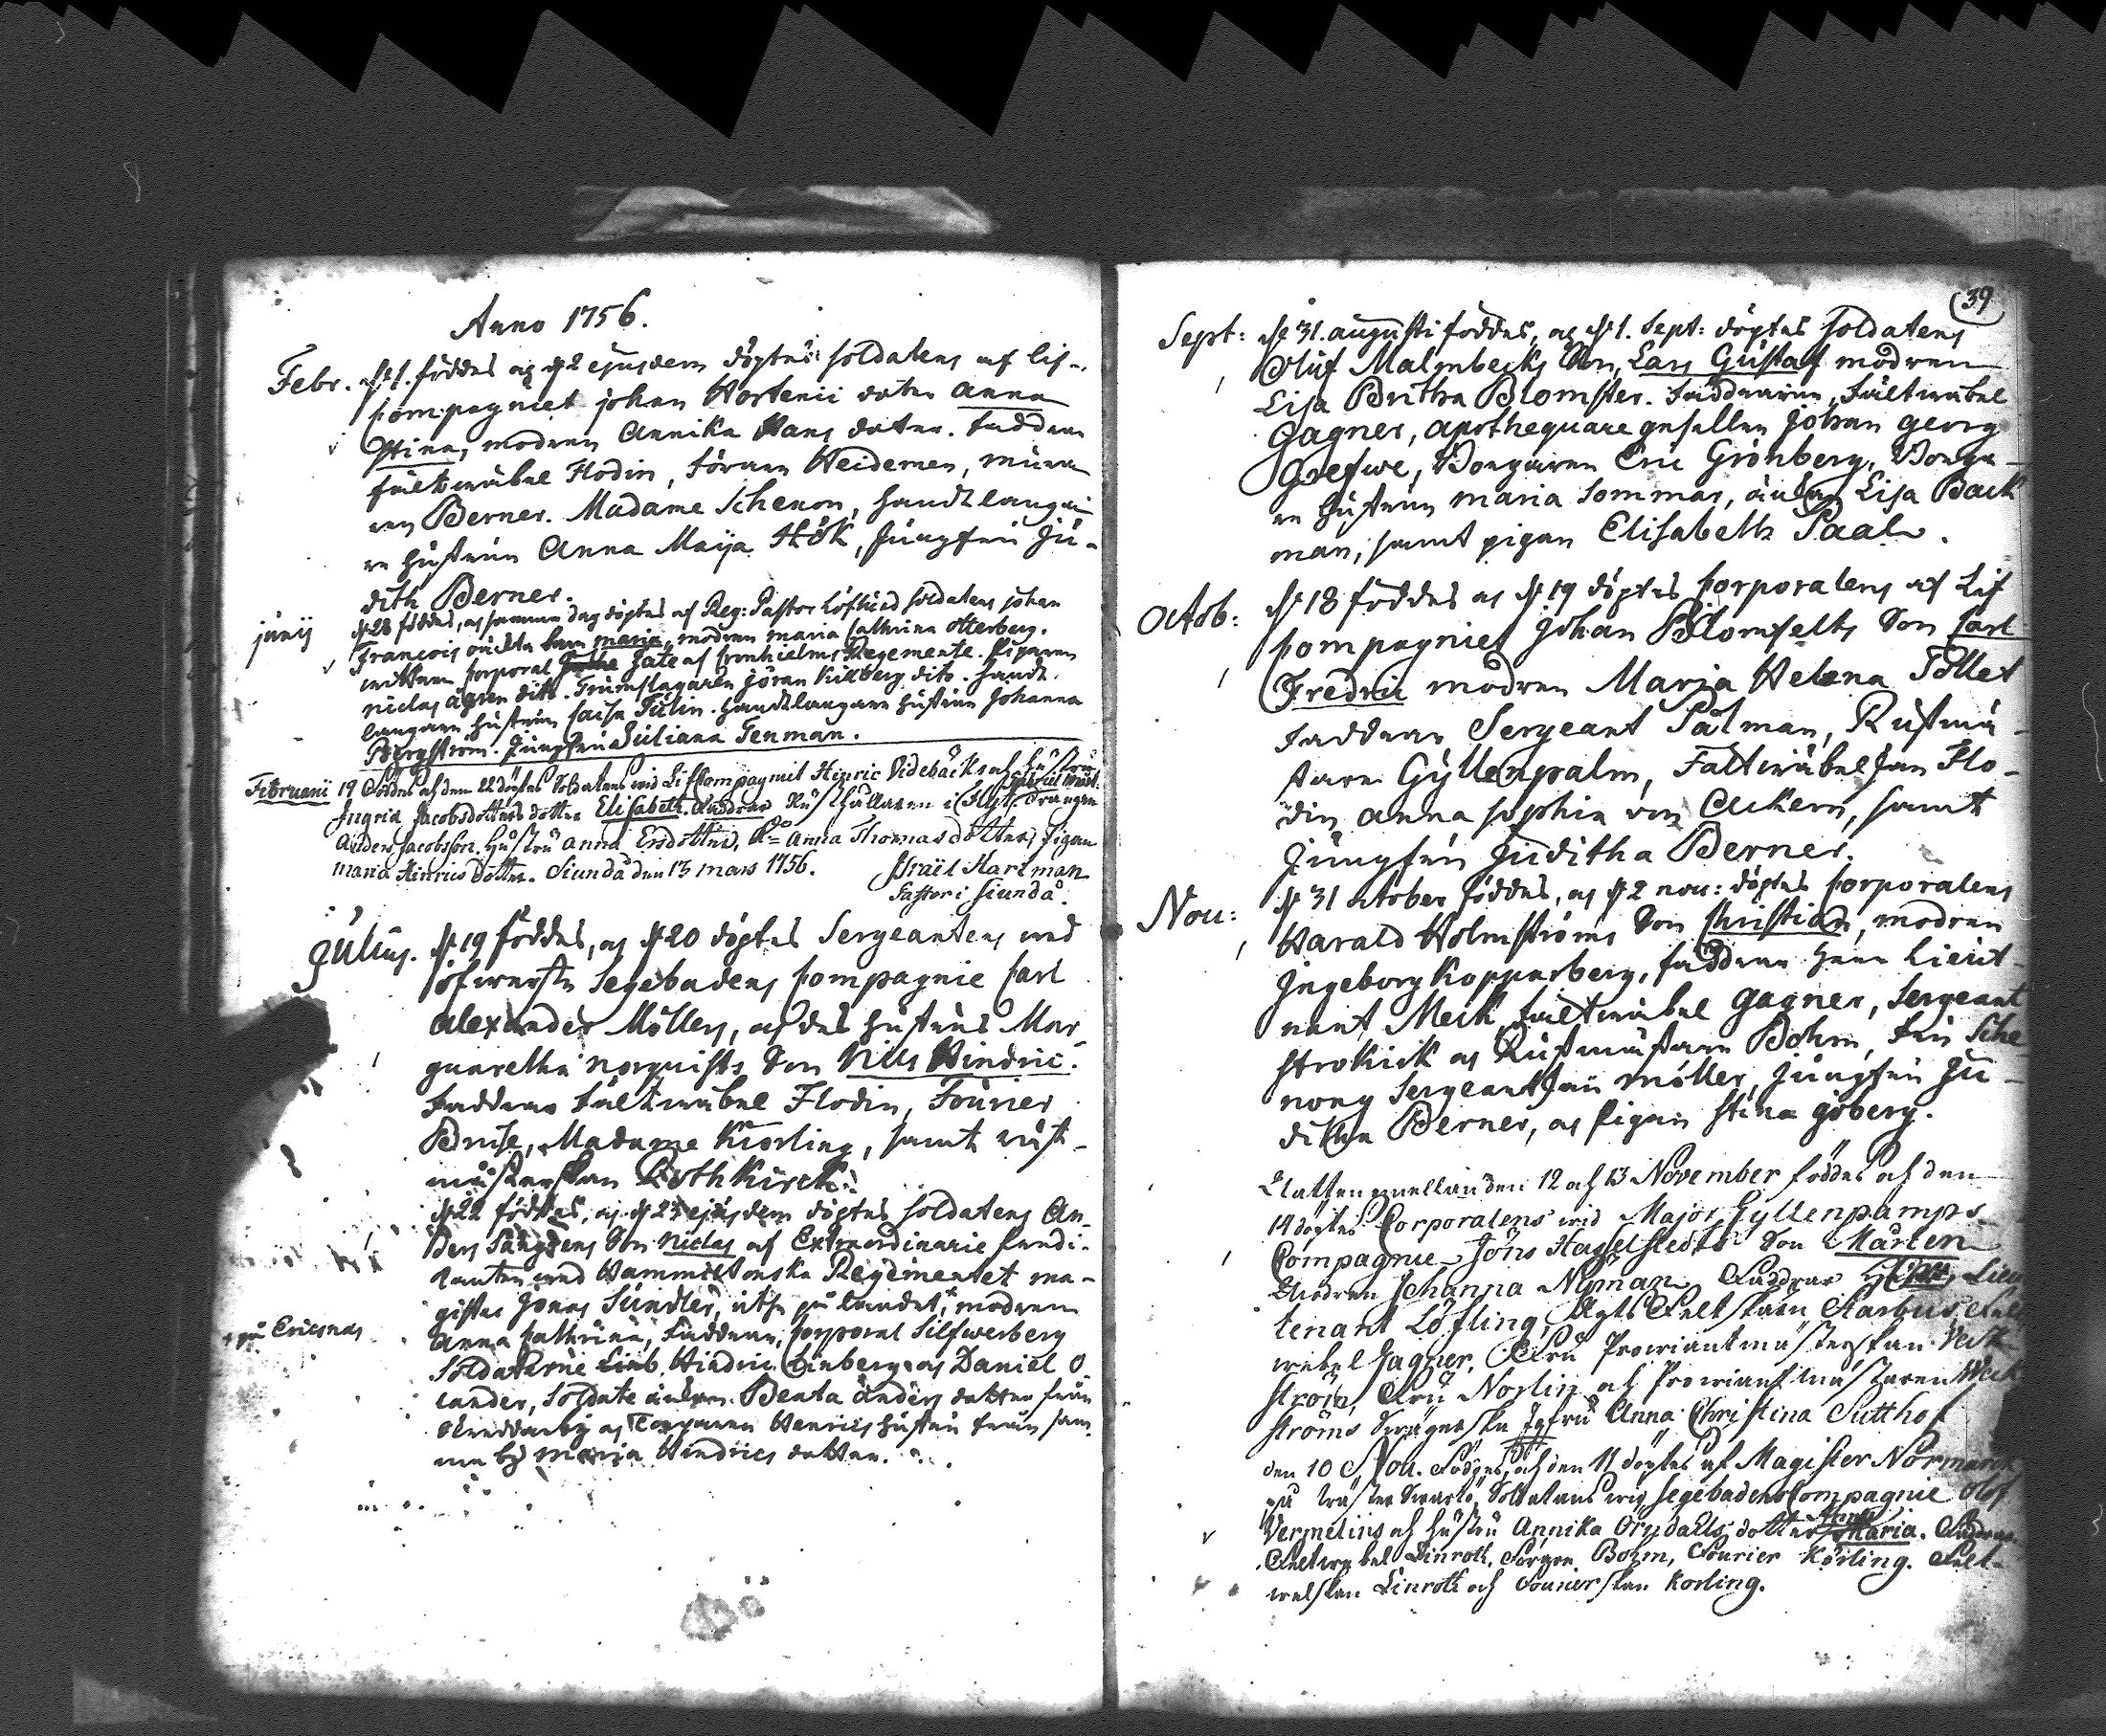 Anno 1756.
Febr. d 1. föddes og d 2 ejusdem döptes soldatens af lif-
Compagniet johan Hortenii dotter Anna
Stina, modren Annika Hans dotter. Faddrar
fältwäbel Flodin, förarn Weidemen, munn
ren Berner. Madame Schenon, handtlangar
en hustrun Anna Maija Hök, Jungfru Ju-
dith Berner.
junij d 28 föddes, og samma dag döptes af Reg: Pastor Löfhied soldatens johan
Francois oäckta barn maria, modren maria Cathrina Otterberg.
Corporal Gate af Cronhielms Regemente. Piparen
niclas ågren dito. Trumslagaren jöran Killberg dito. handt-
langaren hustrun Caisa Tulin. handtlangaren hustrun Johanna
Bergström. Jungfru Juliana Tenman.
Februarii 19 Föddes och den 22 döptes Soldatens wid Lif Compagniet Hinric Videbäcks och hustrun
Ingrid Jacobsdotters dotter Elisabeth. Faddrar Rusthållaren i
Anders Jacobsson. Hustru Anna Ersdotter, Dto Anna Thomasdotter, Pigan
maria Hinricsdotter. Siundå den 13 mars 1756. Israël Hartman
Pastor i Siundå.
Julius. d 19 föddes, og d 20 döptes Sergeantens wed
öfwerste Segebadens Compagnie Carl
Alexander Möllers, och dess hustrus Mar-
guaretha norquists Son Nils Hindric.
Faddrar Fältwäbel Flodin, Fourier
Bruse, Madame Kiörling, samt rust-
mästerskan Rothkirch.
d 22 föddes, og d 23 ejusdem döptes soldatens An-
ders Son Niclas af Extraordinarie
wed Hammiltonska Regementet ma-
gister Jonas Sundler, ute på landet,+ modren
+ på Ericsnas
Anna Cathrina, Faddrar, Corporal Silfwerberg
Soldaterne Hindric Linberg og Daniel O-
lander, Soldate änkan Beata Anders dotter från
og Torparen Henrics hustru från sam-
ma by Maria Hindrics dotter.
39
Sept: d 31. augusti föddes, og d 1. Sept: döptes Soldatens
Oluf Malmbecks Son, Lars Gustaf modren
Lisa Britha Blomster. Faddrarne, Fältwäbel
Gagner, apothequare gesellen Johan georg
Grefwe, Borgaren Eric Grönberg, Borga-
re hustrun maria Sommar, änkan Lisa Back
man, samt pigan Elisabeth Paal.
Octob: d 18 föddes og d 19 döptes Corporalens af Lif
Compagniet Johan Blomfelts Son Carl
Fredric modren Maria Helena Tollet
Faddrar Sergeant Pålman, Rustmä-
stare Gyllenpalm, Fältwäbel Jan Flo-
din Anna Sophia von Ackern, samt
Jungfru Juditha Berner.
Nou: d 31 october föddes, og d 2 nou: döptes Corporalens
Harald Holmströms Son Christian, modren
Ingeborg Kopparberg, faddrar Herr Lieut-
nant Meck, Fältwäbel Gagner, Sergeant
Strokirk og Rustmästare Bohm, Fru Sche-
nong Sergeantfru möller, Jungfru Ju-
ditha Berner, og Pigan Stina goberg.
Natten emellan den 12 och 13 November föddes och den
14 döptes Corporalens wid Major Gyllenpamps
Compagnie Jöns Hasselstedts Son Mårten
Modren Johanna Nyman. Faddrar Lieu
tenant Löfling, Regts Feltskärn Starbus, Felt
webel Gagner, Fru Prowiantmästerskan Wek
ström, Fru Norlin och Prowiantmästaren Wek
ströms Swägerska Jgfru Anna Christina Sutthof
den 10 Nou. Föddes, och den 11 döptes af Magister Normarck
på träsket Swartö, Soldatens wid Segebadens Compagnie Olof
Vermelins och hustru Annika dotter Anna Maria. Faddrar
Feltwebel Linroth, Förare Bohm, Fourier Körling. Felt-
welskan Linroth och Fourierskan Korling.